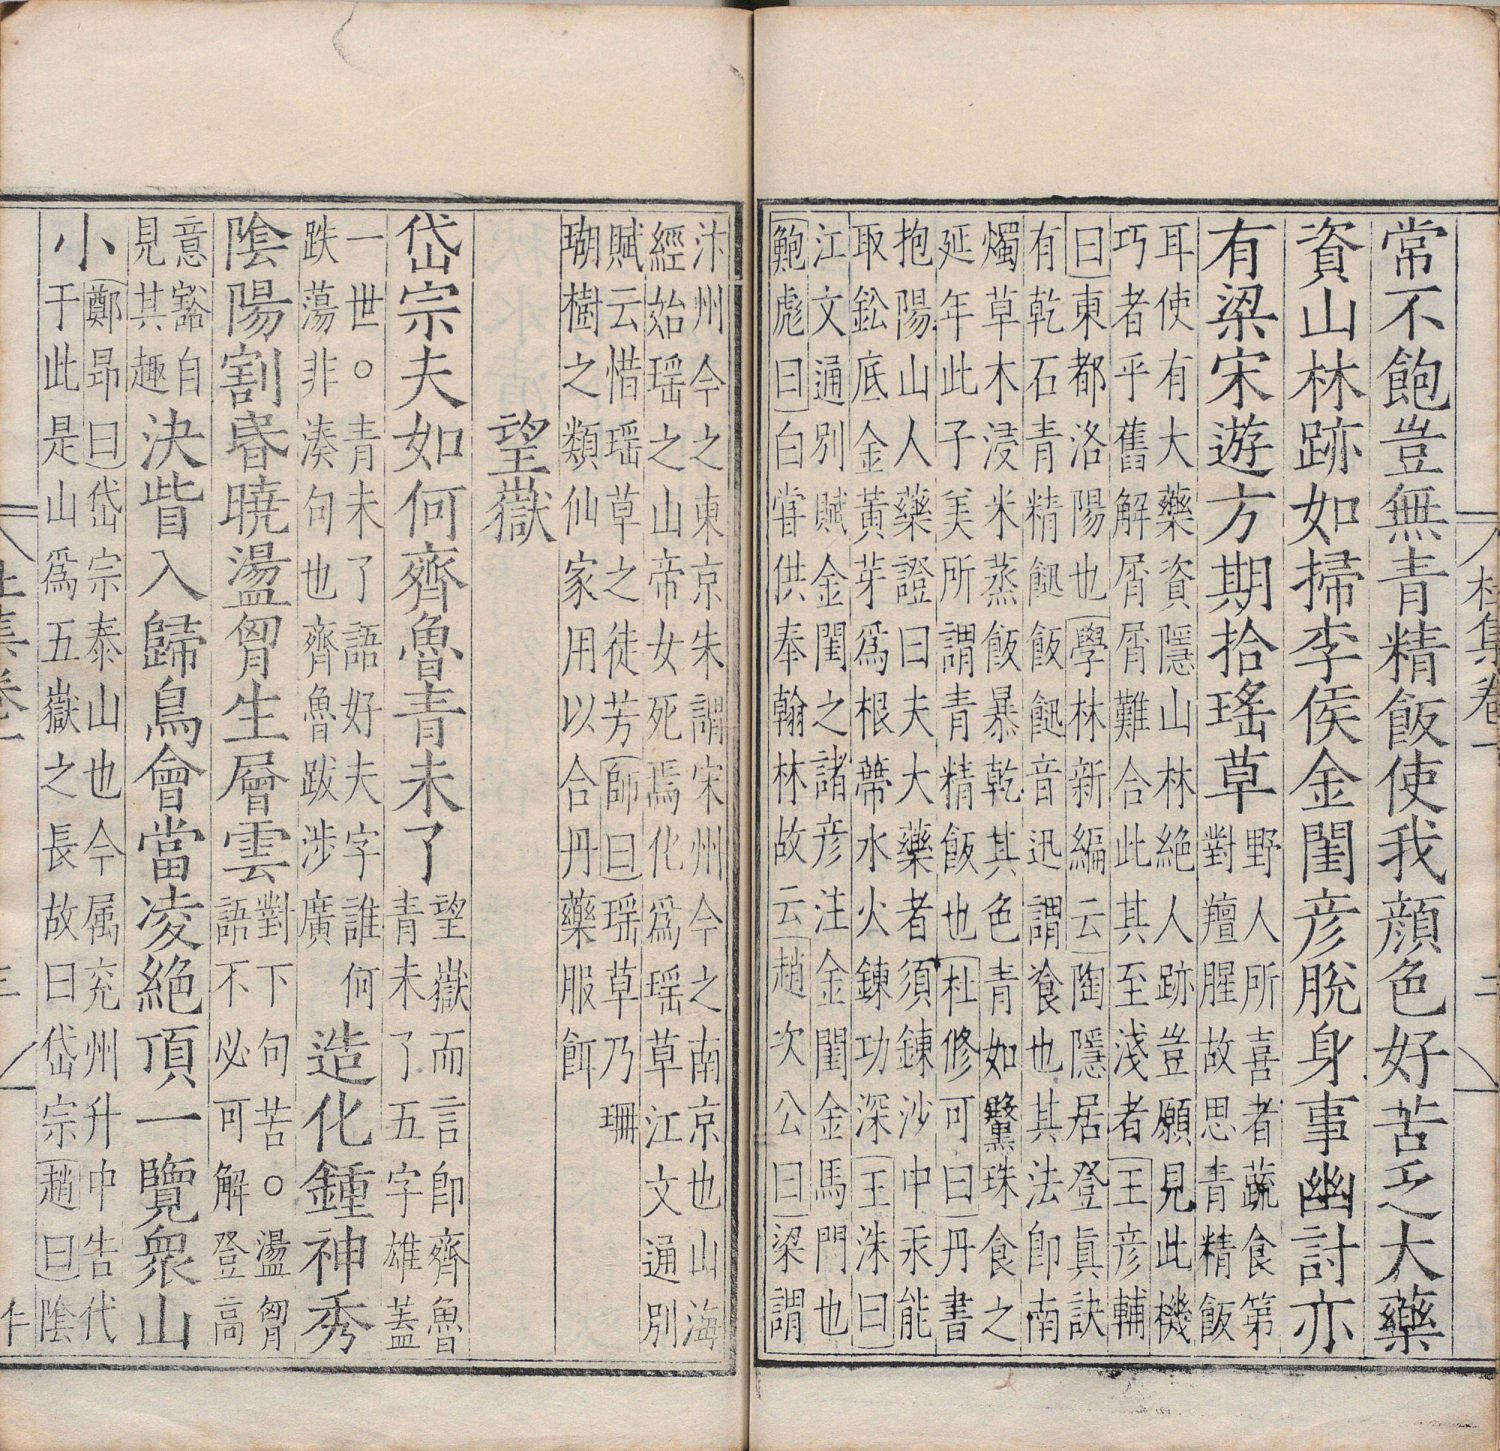 常不飽豈無青精飯使我顔色好苦乏大藥
資山林跡如掃李侯金閨彦脫身事幽討亦
有梁宋遊方期拾瑤草
野人所喜者蔬食第
對羶腥故思青精飯
耳使有大藥資隱山林絶人跡豈願見此機
巧者乎舊解屑屑難合此其至淺者王彦輔
曰東都洛陽也學林新編云陶隱居登眞訣
有乾石青精飿飯飿音迅謂飱也其法即南
燭草木浸米蒸飯暴乾其色青如黳珠食之
延年此子美所謂青精飯也杜修可曰丹書
抱陽山人藥證曰夫大藥者須鍊沙中汞能
取鈆底金黃芽爲根蔕水火鍊功深王洙曰
江文通別賦金閨之諸彦注金閨金馬門也
鮑彪曰白甞供奉翰林故云趙次公曰梁謂
汴州今之東京朱謂宋州今之南京也山海
經始瑶之山帝女死焉化爲瑶草江文通別
賦云惜瑶草之徒芳師曰瑶草乃珊
瑚樹之類仙家用以合丹藥服餌
望嶽
岱宗夫如何齊魯青未了
望嶽而言即齊魯
青未了五字雄蓋
一世。青未了語好夫字誰何
跌蕩非湊句也齊魯跋涉廣
造化鍾神秀
陰陽割昏曉盪胷生層雲
對下句苦。盪胷
語不必可解登高
意豁自
見其趣
決眥入歸鳥會當凌絶頂一覽衆山
小
鄭昻曰岱宗泰山也今属兖州升中告代
于此是山爲五嶽之長故曰岱宗趙曰陰